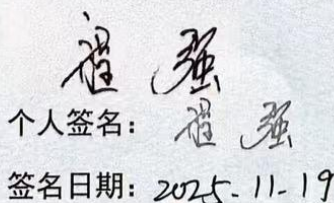 程强
个人签名：程强
签名日期：2025-11-19